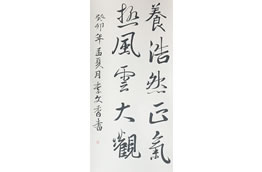 養浩然正氣
極風雲大觀
癸卯年孟夏月文書